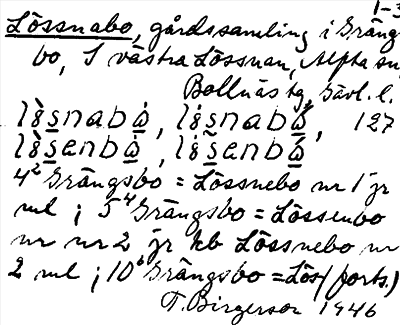 1-3
Lössnabo, gårdssamling i Gräng
bo, S västra Lössnan, Alfta sn,
Bollnäs tg, Gävl. l.
lösnabo, lösnabo, 127
lösenbo, lösenbo
4² Grängsbo = Lössnebo nr 1 jr
ml; 5⁴ Grängsbo = Lössenbo
nr nr 2 jr kb Lössnebo nr
2 ml; 10⁶ Grängsbo = Lös (forts.)
T. Birgerson 1946